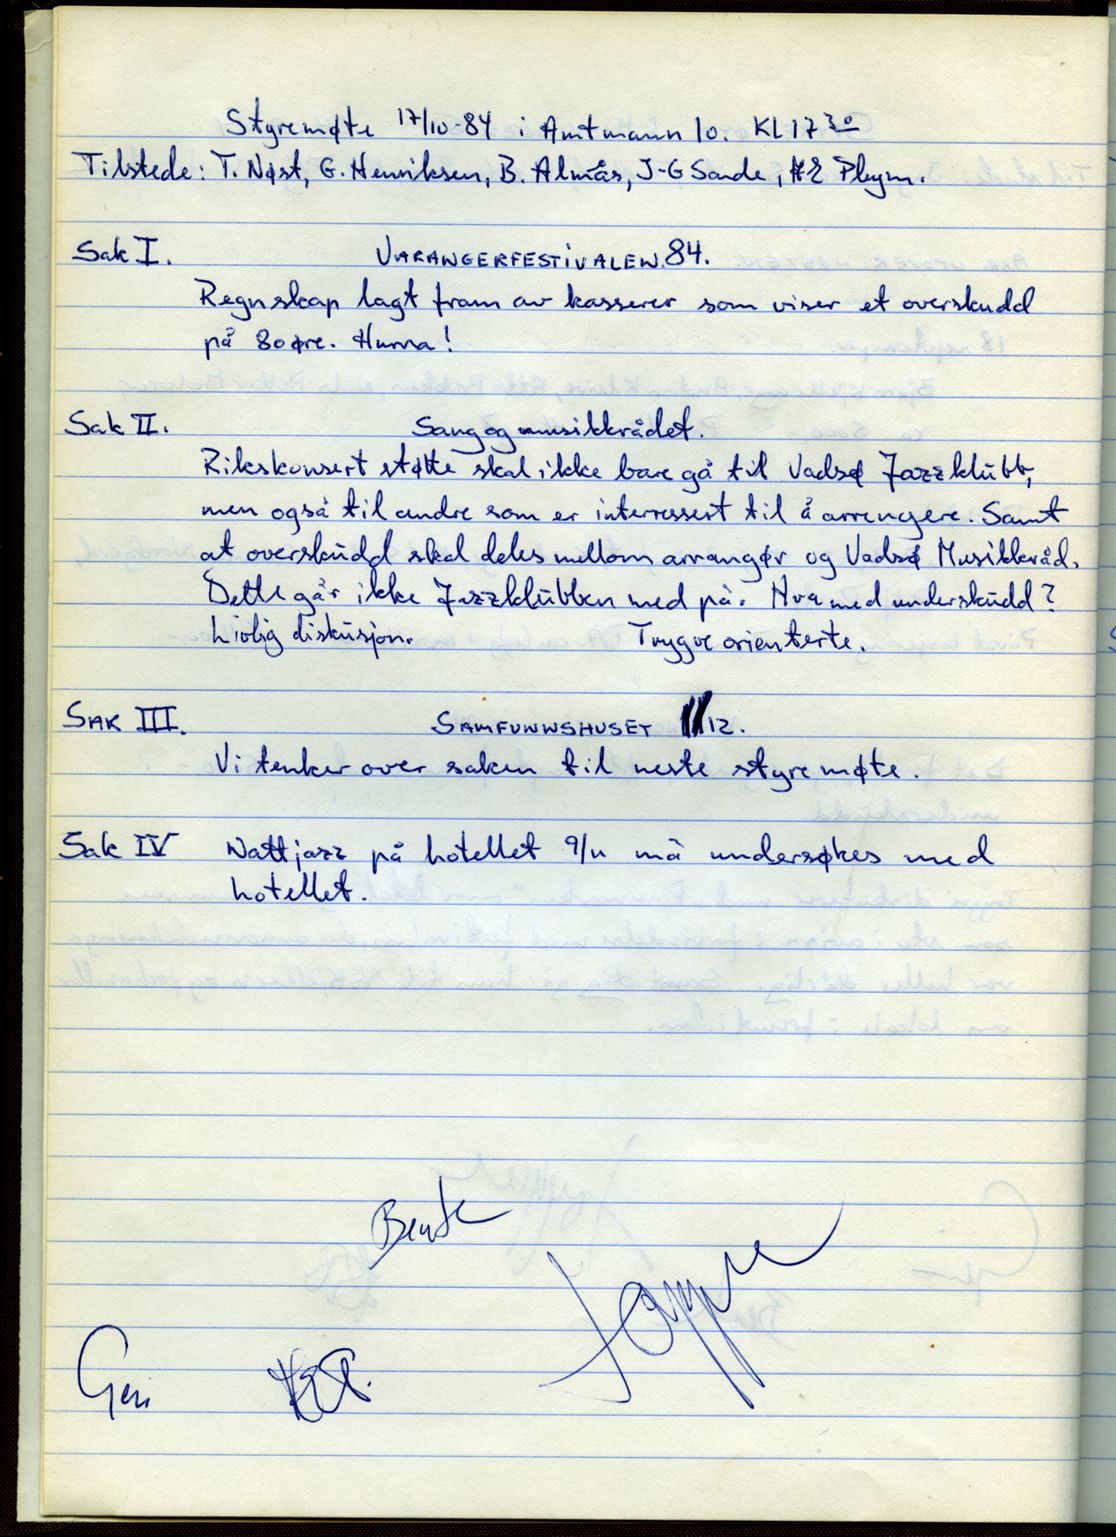 Styremøte 17/10-84 i Amtmann 10. Kl 17 30
Tilstede: T. Nøst, G. Henriksen, B. Almås, J-G Sande, HE Pleym.
Sak I. VARANGERFESTIVALEN 84.
Regnskap lagt fram av kasserer som viser et overskudd
på 80 øre. Hurra!
Sak II. Sang og musikkrådet.
Rikskonsert støtte skal ikke bare gå til Vadsø Jazzklubb,
men også til andre som er interressert til å arrengere. Samt
at overskudd skal deles mellom arrangør og Vadsø Musikkråd.
Dette går ikke Jazzklubben med på. Hva med underskudd?
Livlig diskusjon. Trygve orienterte.
SAK III. SAMFUNNSHUSET 12.
Vi tenker over saken til neste styremøte.
Sak IV Nattjazz på hotellet 9/11 må undersøkes med
hotellet.
Bente
Trygve
Geir
HEP.